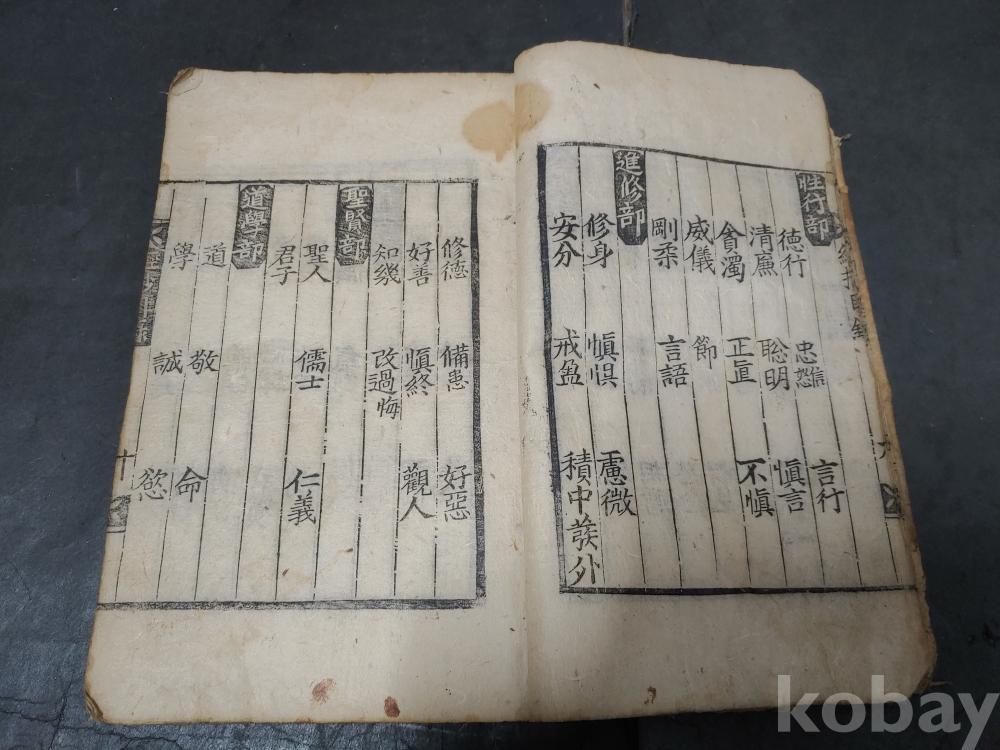 性行部
德行 忠恕信 言行
清廉 聡明 愼言
貪濁 正直 不愼
威儀 節
剛柔 言語
進修部
修身 愼惧 慮微
安分 戒盈 積中發外
修德 備患 好惡
好善 愼終 觀人
知幾 改過悔
聖賢部
聖人 儒士 仁義
君子
道學部
道 敬 命
學 誠 慾
十
kobay